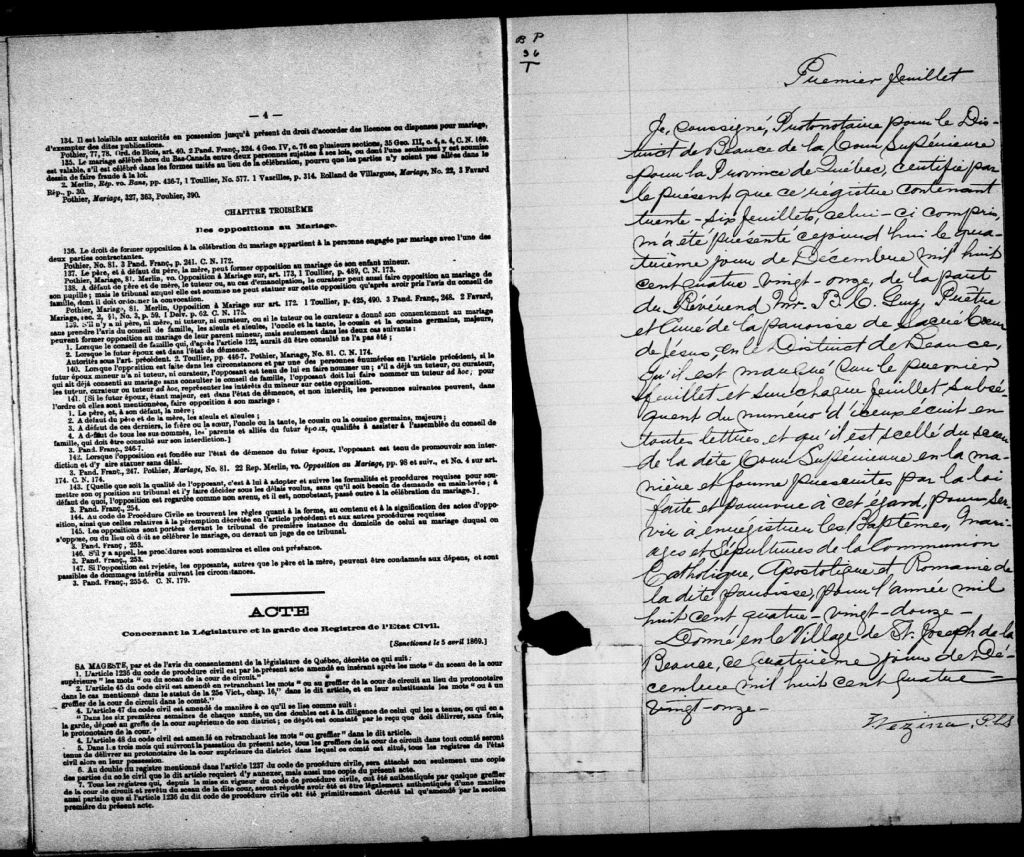 — 4 —
134. Il est loisible aux autorités en possession jusqu'à présent du droit d'accorder des licences ou dispenses pour mariage,
d'exempter des dites publications.
Pothier, 77, 78. Ord. de Blois, art. 40. 2 Pand. Franç., 324. 4 Geo. IV, c. 76 en plusieurs sections, 35 Geo. III, c. 4, s. 4, C. N. 169.
135. Le mariage célébré hors du Bas-Canada entre deux personnes sujettes à ses lois, ou dont l'une seulement y est soumise
est valable, s'il est célébré dans les formes usités au lieu de la célébration, pourvu que les parties n'y soient pas allées dans le
dessin de faire fraude à la loi.
2. Merlin, Rép. vo. Bans, pp. 436-7, 1 Toullier, No. 577. 1 Vazrilles, p. 314. Rolland de Villargues, Mariage, No. 22, 3 Favard
Rép., p. 30.
Pothier, Mariage, 327, 363, Pouhier, 390.
CHAPITRE TROISIÈME
Des oppositions au Mariage.
136. Le droit de former opposition à la célébration du mariage appartient à la personne engagée par mariage avec l'une des
deux parties contractantes.
Pothier, No. 81. 3 Pand. Franç., p. 241. C. N. 172.
137. Le père, et à défaut du père, la mère, peut former opposition au mariage de son enfant mineur.
Pothier, Mariage, 81. Merlin, vo. Opposition à Mariage sur, art. 173, 1 Toullier, p. 489, C. N. 173.
138. A défaut de père et de mère, le tuteur ou, au cas d'émancipation, le curateur peut aussi faire opposition au mariage de
son pupille; mais le tribunal auquel elle est soumise ne peut statuer sur cette opposition qu'après avoir pris l'avis du conseil de
famille, dont il doit ordonner la convocation.
Pothier, Mariage, 81. Merlin, Opposition à Mariage sur art. 172. 1 Toullier, p. 425, 490. 3 Pand. Franç., 248. 2 Favard,
Mariage, sec. 2, §1, No. 3, p. 59. 1 Delv. p. 62. C. N. 175.
139. S'il n'y a ni père, ni mère, ni tuteur, ni curateur, ou si le tuteur ou le curateur a donné son consentement au mariage
sans prendre l'avis du conseil de famille, les aïeuls et aïeules, l'oncle et la tante, le cousin et la cousine germains, majeurs,
peuvent former opposition au mariage de leur parent mineur, mais seulement dans les deux cas suivants:
1. Lorsque le conseil de famille qui, d'après l'article 122, aurait dû être consulté ne l'a pas été;
2. Lorsque le futur époux est dans l'état de démence.
Autorités sous l'art. précédent. 2. Toullier, pp. 446-7. Pothier, Mariage, No. 81. C. N. 174.
140. Lorsque l'opposition est faite dans les circonstances et par une des personnes énumérées en l'article précédent, si le
futur époux mineur n'a ni tuteur, ni curateur, l'opposant est tenu de lui en faire nommer un; s'il a déjà un tuteur, ou curateur,
qui ait déjà consenti au mariage sans consulter le conseil de famille, l'opposant doit lui faire nommer un tuteur ad hoc; pour
les tuteur, curateur ou tuteur ad hoc, représenter les intérêts du mineur sur cette opposition.
141. [Si le futur époux, étant majeur, est dans l'état de démence, et non interdit, les personnes suivantes peuvent, dans
l'ordre où elles sont mentionnées, faire opposition à son mariage:
1. Le père, et, à son défaut, la mère;
2. A défaut du père et de la mère, les aïeuls et aïeules;
3. A défaut de ces derniers, le frère ou la sœur, l'oncle ou la tante, le cousin ou la cousine germains, majeurs;
4. A défaut de tous les sus-nommés, les parents et alliés du futur époux, qualifiés à assister à l'assemblée du conseil de
famille, qui doit être consulté sur son interdiction.]
3. Pand. Franç., 246-7.
142. Lorsque l'opposition est fondée sur l'état de démence du futur époux, l'opposant est tenu de promouvoir son inter-
diction et d'y faire statuer sans délai.
3. Pand. Franç., 247. Pothier, Mariage, No. 81. 22 Rep. Merlin, vo. Opposition au Mariage, pp. 98 et suiv., et No. 4 sur art.
174. C. N. 174.
143. [Quelle que soit la qualité de l'opposant, c'est à lui à adopter et suivre les formalités et procédures requises pour sou-
mettre son opposition au tribunal et l'y faire décider sous les délais voulus, sans qu'il soit besoin de demande en main levée; à
défaut de quoi, l'opposition est regardée comme non avenu, et il est, nonobstant, passé outre à la célébration du mariage.]
3. Pand. Franç., 254.
144. Au code de Procédure Civile se trouvent les règles quant à la forme, au contenu et à la signification des actes d'oppo-
sition, ainsi que celles relatives à la péremption décrétée en l'article précédent et aux autres procédures requises
145. Les oppositions sont portées devant le tribunal de première instance du domicile de celui au mariage duquel on
s'oppose, ou du lieu où doit se célébrer le mariage, ou devant un juge de ce tribunal.
3. Pand. Franç., 253.
146. S'il y a appel, les procédures sont sommaires et elles ont préséance.
3. Pand. Franç., 253.
147. Si l'opposition est rejetée, les opposants, autres que le père et la mère, peuvent être condamnés aux dépens, et sont
passibles de dommages intérêts suivant les circonstances.
3. Pand. Franç., 255-6. C. N. 179.
ACTE
Concernant la Législature et la garde des Registres de l'Etat Civil.
[Sanctionné le 5 avril 1869.]
SA MAGESTÉ, par et de l'avis du consentement de la législature de Québec, décrète ce qui suit:
1. L'article 1236 du code de procédure civil est par le présent acte amendé en insérant après les mots "du sceau de la cour
supérieure" les mots "ou du sceau de la cour de circuit."
2. L'article 45 du code civil est amendé en retranchant les mots "ou au greffier de la cour de circuit au lieu du protonotaire
dans le cas mentionné dans le statut de la 25e Vict., chap. 16," dans le dit article, et en leur substituants les mots "ou à un
greffier de la cour de circuit dans le comté."
4. L'article 47 du code civil est amendé de manière à ce qu'il se lise comme suit:
"Dans les six premières semaines de chaque année, un des doubles est à la diligence de celui qui les a tenus, ou qui en a
la garde, déposé au greffe de la cour supérieure de son district; ce dépôt est constaté par le reçu que doit délivrer, sans frais,
le protonotaire de la cour."
4. L'article 48 du code civil est amendé en retranchant les mots "ou greffier" dans le dit article.
5. Dans les trois mois qui suivront la passation du présent acte, tous les greffiers de la cour de circuit dans tout comté seront
tenus de délivrer au protonotaire de la cour supérieure du district dans lequel ce comté est situé, tous les registres de l'état
civil alors en leur possession.
6. Au double du registre mentionné dans l'article 1237 du code de procédure civile, sera attaché non seulement une copie
des parties du code civile que le dit article requiert d'y annexer, mais aussi une copie du présent acte.
7. Tous les registres qui, depuis la mise en vigueur du code de procédure civile, ont été authentiqués par quelque greffier
de la cour de circuit et revêtu du sceau de la dite cour, seront réputés avoir été et être légalement authentiqués d'une manière
aussi parfaite que si l'article 1236 du dit code de procédure civile eût été primitivement décrété tel qu'amendé par la section
première du présent acte.
B P
36
T
Premier feuillet
Je, soussigné, Protonotaire pour le Dis-
trict de Beauce de la Cour Supérieure
pour la Province de Québec, certifie par
le présent que ce régistre contenant
trente-six feuillets, celui-ci compris,
m'a été présenté cejourd'hui le qua-
trième jour de Décembre mil huit
cent quatre-vingt-onze, de la part
du Révérend Mr. B. C. Guy, Prêtre
et Curé de la paroisse de Sacré Cœur
de Jésus, en le District de Beauce,
qu'il est marqué sur le premier
feuillet et sur chaque feuillet subsé-
quent du numéro d'iceux écrit en
toutes lettres, et qu'il est scellé du sceau
de la dite Cour Supérieure en la ma-
nière et forme prescrites par la loi
faite et pourvue à cet égard, pour ser-
vir à enregistrer les Baptêmes, Mari-
ages et Sépultures de la Communion
Catholique, Apostolique et Romaine de
la dite paroisse, pour l'année mil
huit cent quatre-vingt-douze-
Donné en le Village de St. Joseph de la
Beauce, ce quatrième jour de Dé-
cembre mil huit cent quatre
vingt-onze-
Vezina, P.C.S